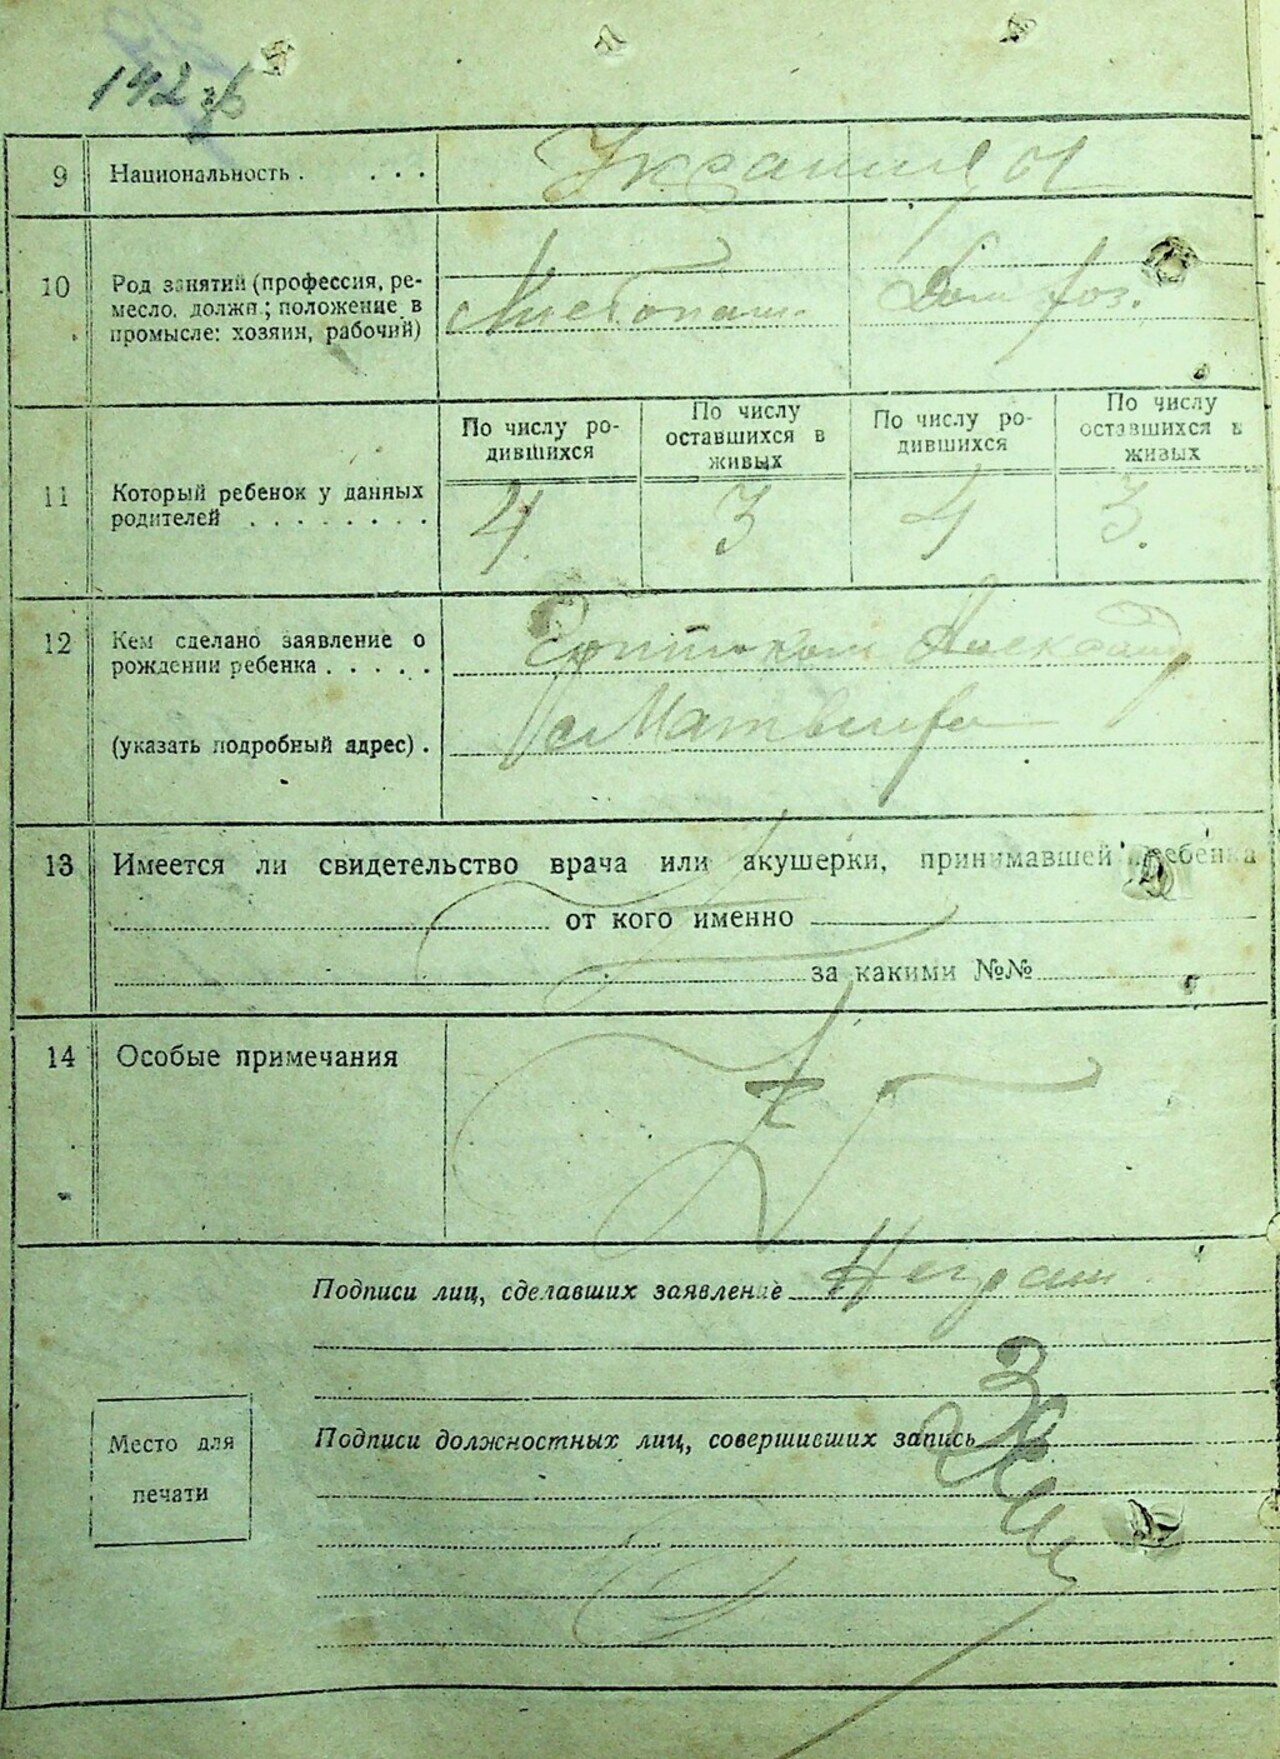 142 зв
9 Национальность . . . . Украинцы
10 Род занятий (профессия, ре-
месло, должн; положение в
промысле: хозяин, рабочий)
Хлебопаш. Дом хоз.
По числу ро-
дившихся
По числу
оставшихся в
живых
По числу ро-
дившихся
По числу
оставшихся в
живых
11 Который ребенок у данных
родителей . . . . . . . .
4 3 4 3.
12 Кем сделано заявление о
рождении ребенка . . . . .
Александр
(указать подробный адрес) .
13 Имеется ли свидетельство врача или акушерки, принимавшей ребенка
от кого именно
за какими №№
14 Особые примечания
Подписи лиц, сделавших заявление Неграм
Подписи должностных лиц, совершивших запись
Место для
печати